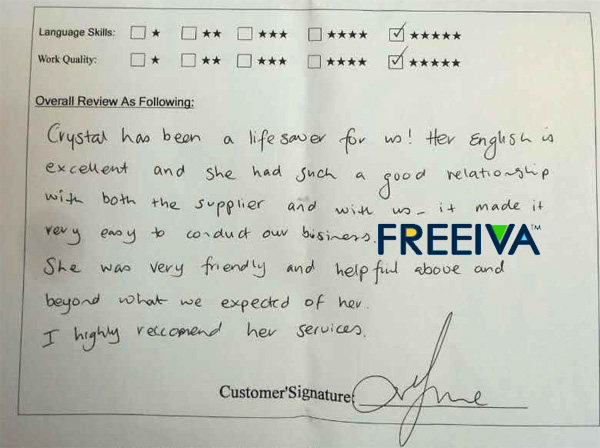 Language Skills: ☐ ★ ☐ ★★ ☐ ★★★ ☐ ★★★★ ☑ ★★★★★
Work Quality: ☐ ★ ☐ ★★ ☐ ★★★ ☐ ★★★★ ☑ ★★★★★
Overall Review As Following:
Crystal has been a lifesaver for us! Her English is
excellent and she had such a good relationship
with both the supplier and with us - it made it
very easy to conduct our business. FREEIVA™
She was very friendly and helpful above and
beyond what we expected of her.
I highly reccomend her services.
Customer'Signature: